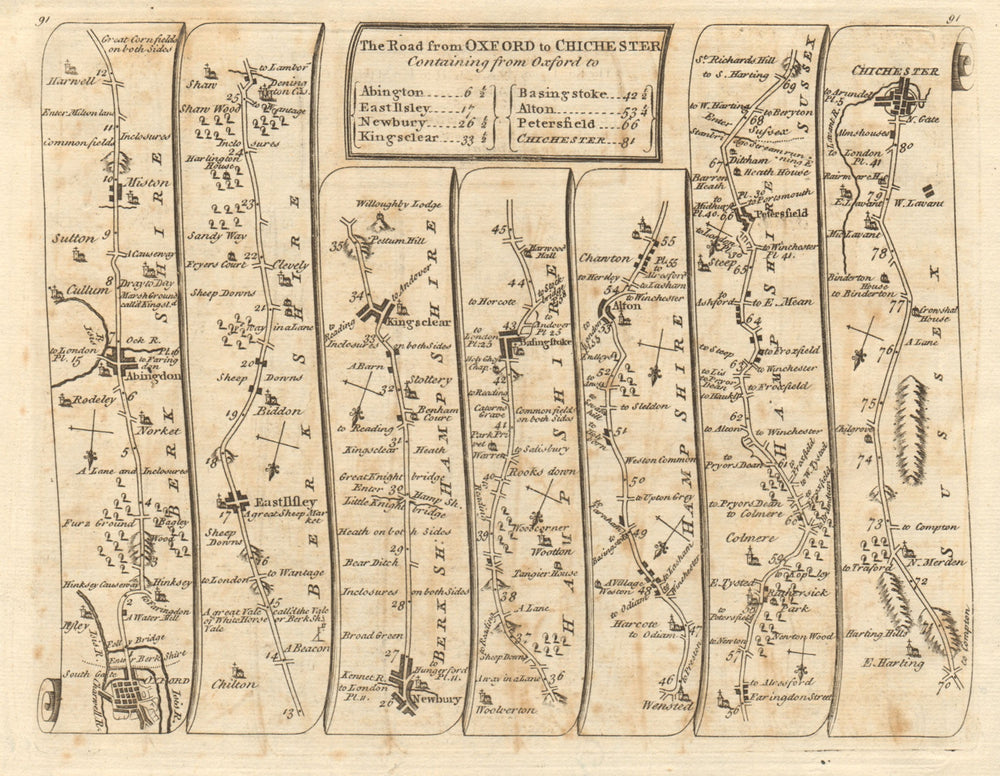 91
91
The Road from OXFORD to CHICHESTER
Containing from Oxford to
Abington 6 1/2
East Ilsley 17
Newbury 26 1/2
Kingsclear 33 1/2
Basingstoke 42 1/2
Alton 53 1/4
Petersfield 66
CHICHESTER 81
Great Cornfields
on both Sides
Harwell
12
Enter Milton lane
11
Inclosures
Common field
10
Milston
Sutton
9
A Causeway
8
Dray to Day
Marsh Ground
call'd Kingst.d
Cullum
R. Isis
7
Ock R.
to London
Pl. 15
to Faring
don
Abingdon
6
Rodeley
Norket
5
A Lane and Inclosures
4
Furz Ground
Bagley
Wood
Hinksey Causeway
Hinksey
to Farringdon
2
A Water Mill
Ifley
Isis R.
Folly Bridge
Enter Berk Shirt
South Gate
OXFORD
Charwell R.
Isis R.
BERK SHIRE
to Lambor
Shaw
Dening
ton Cas.
25
to Wantage
Shaw Wood
Inclo
sures
24
Harlington
House
23
Sandy Way
22
Fryers Court
Clevely
Sheep Downs
21
Way in a Lane
20
Sheep Downs
19
Biddon
18
East Ilsley
17
A great Sheep Mar
ket
Sheep
Downs
16
to London
to Wantage
15
A great Vale call'd the Vale
of White Horse or Berk Shr.
Vale
A Beacon
14
Chilton
13
BERK SHIRE
Willoughby Lodge
35
Pettum Hill
34
to Andover
Kingsclear
to Reading
33
Inclosures on both Sides
A Barn
32
Slottery
Benham
Court
to Reading
31
Kingsclear Heath
Great Knight bridge
30
Enter Hamp Sh.
Little Knight bridge
Heath on both Sides
29
Bear Ditch
Inclosures on both Sides
28
Broad Green
27
to
Hungerford
Pl. 11.
Kennet R.
to London
Pl. 11.
26
Newbury
BERK SH.
HAMP SHIRE
45
Harwood
Hall
44
to Stock
bridge
to Horcote
to
Andover
Pl. 25
43
to
London
Pl. 25
Basingstoke
Holy Ghost
Chap.
42
to Reading
Catorns
Grave
Common field
on both Sides
41
Park Pri
vet
to Salisbury
Warren
Rooks down
40
to Reading
39
Woodcorner
Wootton
Tangier House
38
A Lane
to Reading
37
Sheep Downs
A way in a Lane
36
Woolverton
HAMP SHIRE
55
Chawton
Pl. 55
to
Alresford
to Hertley
to Lasham
54
to Winchester
Alton
53
52
to Sleldon
51
Weston Common
50
to Upton Grey
49
to Farnham
to Basingstoke
to Lasham
to Winchester
A Village
Weston
48
to Odiam
Harcote
to Odiam
47
46
Wensted
HAMP SHIRE
St. Richards Hill
to S. Harting
69
to W. Harting
to Beryton
68
Enter Sussex
67
Ditcham
Heath House
Barren
Heath
Pl. 30
to Portsmouth
to
Midhurst
Pl. 40.
66
Petersfield
to London
Pl. 30
to Winchester
Pl. 41.
Steep
65
to
Ashford
to E. Mean
64
to Steep
to Froxfield
63
to Winchester
to Lis
to Prior
Dean
to Hawkly
to Froxfield
62
to Alton
to Winchester
to
Pryors Dean
61
to Pryors Dean
to Colmere
Colmere
59
to Ropley
E. Tysted
Rotherfick
Park
to
Petersfield
to Newton
Newton Wood
57
to Alresford
Faringdon Street
56
HAMP SHIRE
SUSSEX
CHICHESTER
to Arundel
Pl. 5
N. Gate
Lavant R.
Almshouses
to London
Pl. 41
80
Rairmere H.
79
E. Lavant
W. Lavant
Mid Lavant
78
Binderton
House
to Binderton
77
Crowshal
House
A Lane
76
75
Chilgrove
74
73
to Compton
N. Merden
to Traford
72
Harting Hills
71
E. Harting
to Compton
70
SUSSEX